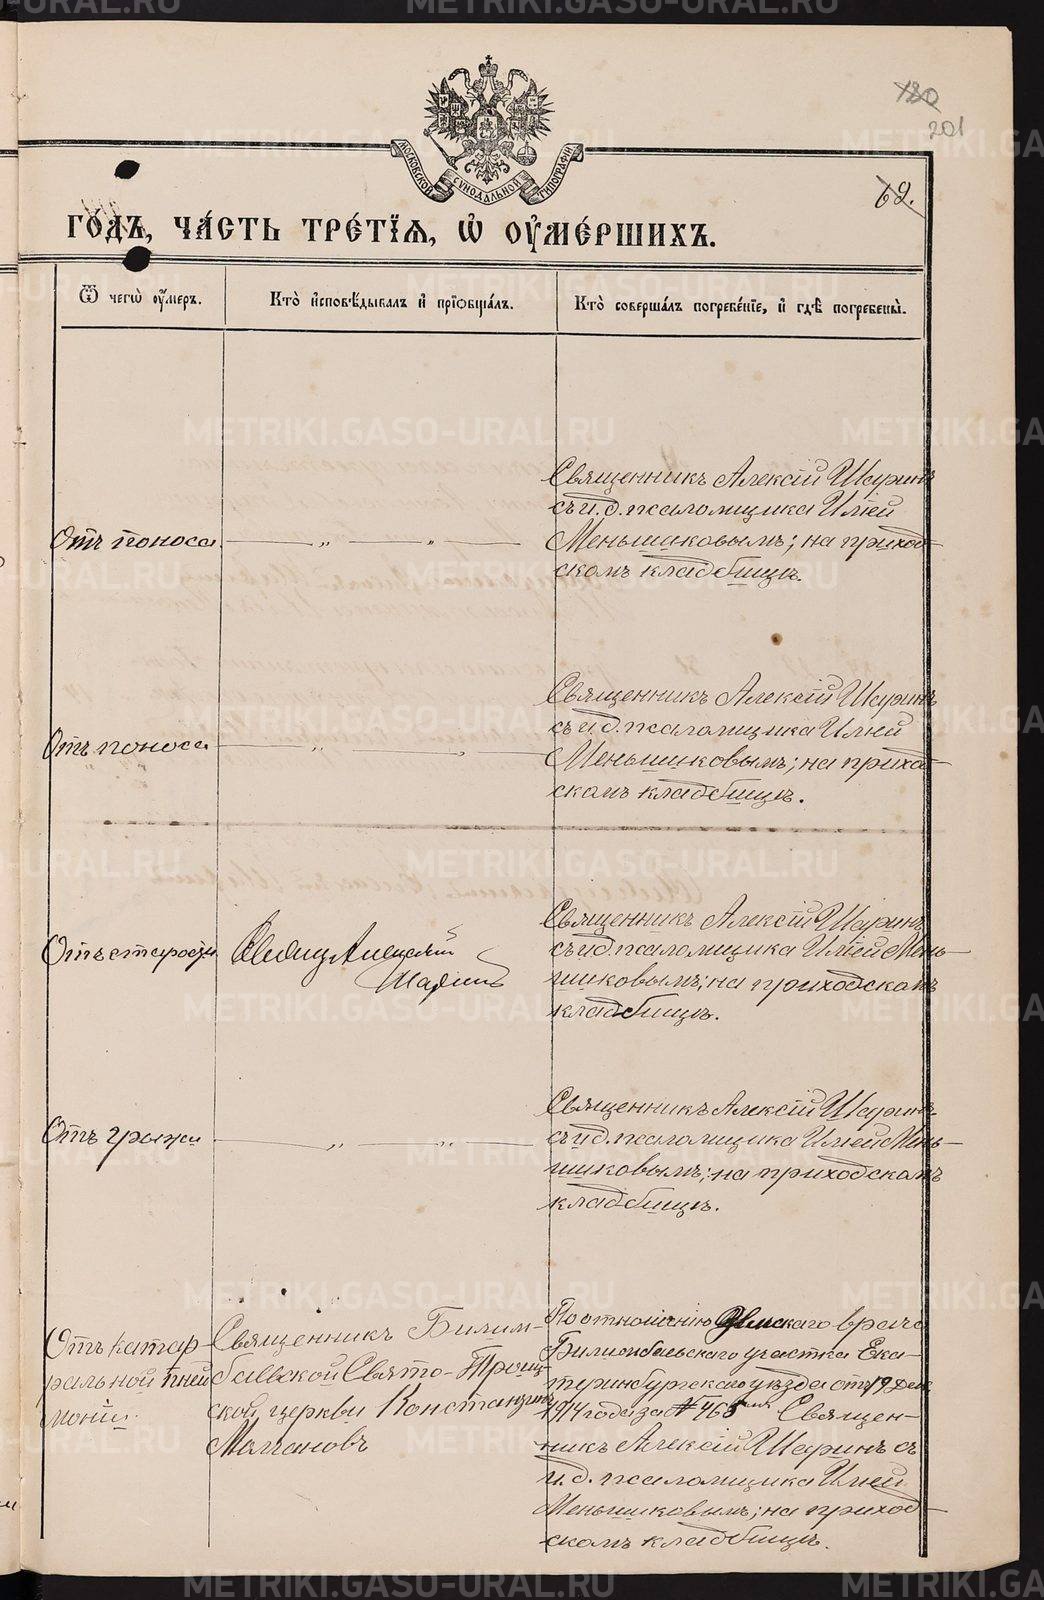 120
201
МОСКОВСКОЙ СѴНОДАЛЬНОЙ ТИПОГРАФІИ
62.
ГО́ДЪ, ЧА́СТЬ ТРЕ́ТЇѦ, Ѡ҆ ОУ҆МЕ́РШИХЪ.
Ѿ чегѡ̀ оу҆́меръ.
Кто̀ и҆сповѣ́дывалъ и҆ прїѡбща́лъ.
Кто̀ соверша́лъ погребе́нїе, и҆ гдѣ̀ погребены̀.
Священникъ Алексій Шаринъ
съ и. д. псаломщика
Отъ поноса
Меньшиковымъ; на приход-
скомъ кладбищѣ.
Священникъ Алексій Шаринъ
съ и. д. псаломщика
Отъ поноса
Меньшиковымъ; на приход-
скомъ кладбищѣ.
Священникъ Алексій Шаринъ
Отъ старости
Алексѣй
Шаринъ
съ и. д. псаломщика Мень-
шиковымъ; на приходскомъ
кладбищѣ.
Священникъ Алексій Шаринъ
Отъ грыжи
съ и. д. псаломщика Мень-
шиковымъ; на приходскомъ
кладбищѣ.
Отъ катар-
ральной пней
моніи.
Священникъ Билим-
баевской Свято-Троиц-
ской церкви Константинъ
По отношенію Земскаго врача
Билимбаевскаго участка Ека-
теринбургскаго уѣзда отъ 19 Дек.
1914 года за № 465 Священ-
никъ Алексій Шаринъ съ
и. д. псаломщика
Меньшиковымъ; на приход-
скомъ кладбищѣ.
METRIKI.GASO-URAL.RU